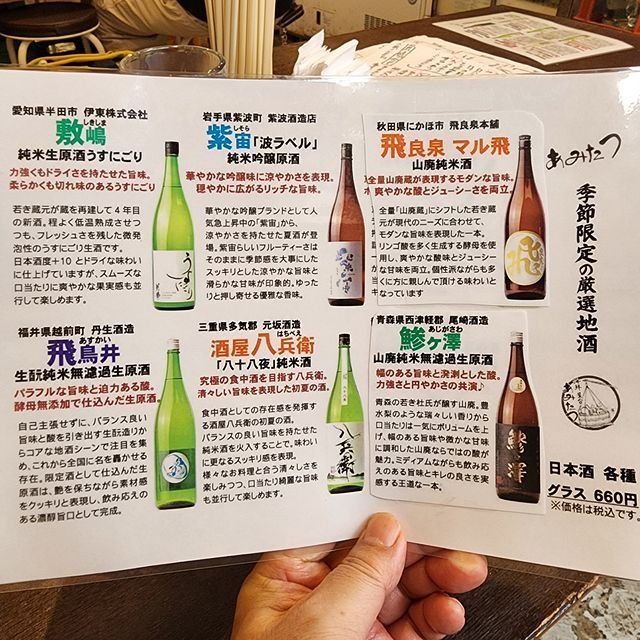 愛知県半田市 伊東株式会社
しきしま
敷嶋
純米生原酒うすにごり
力強くもドライさを持たせた旨味。
柔らかくも切れ味のあるうすにごり
若き蔵元が蔵を再建して4年目
の新酒。程よく低温熟成させつ
つも、フレッシュさを残した微発
泡性のうすにごり生酒です。
日本酒度+10とドライな味わい
に仕上げていますが、スムーズな
口当たりに爽やかな果実感も並
行して楽しめます。
岩手県紫波町 紫波酒造店
しそら
紫宙「波ラベル」
純米吟醸原酒
華やかな吟醸味に涼やかさを表現。
穏やかに広がるリッチな旨味。
華やかな吟醸ブランドとして人
気急上昇中の「紫宙」から、
涼やかさを持たせた夏酒が登
場。紫宙らしいフルーティーさは
そのままに季節感を大事にした
スッキリとした涼やかな旨味と
滑らかな甘味が印象的。ゆった
りと押し寄せる優雅な香味。
秋田県にかほ市 飛良泉本舗
飛良泉 マル飛
山廃純米酒
全量山廃蔵が表現するモダンな旨味。
爽やかな酸とジューシーさを両立。
全量「山廃蔵」にシフトした若き蔵
元が現代のニーズに合わせて、
モダンな旨味を表現した一本。
リンゴ酸を多く生成する酵母を使
用し、爽やかな酸味とジューシー
な甘味を両立。個性派ながらも多
くに方に親しんで頂ける味わいと
なっています
福井県越前町 丹生酒造
あすかい
飛鳥井
生酛純米無濾過生原酒
パラフルな旨味と迫力ある酸。
酵母無添加で仕込んだ生原酒。
自己主張せずに、バランス良い
旨味と酸を引き出す生酛造りか
らコアな地酒シーンで注目を集
め、これから全国に名を轟かせる
存在。限定酒として仕込んだ生
原酒は、艶を保ちながら素材感
をクッキリと表現し、飲み応えの
ある濃醇旨口として完成。
三重県多気郡 元坂酒造
はちべえ
酒屋八兵衛
「八十八夜」純米酒
究極の食中酒を目指す八兵衛。
清々しい旨味を表現した初夏の酒。
食中酒としての存在感を発揮す
る酒屋八兵衛の初夏の酒。
バランスの良い旨味を持たせた
純米酒を火入することで。味わい
に更なるスッキリ感を表現。
様々なお料理と合う清々しさを
楽しみつつ、口当たり綺麗な旨味
も並行して楽しめます。
青森県西津軽郡 尾崎酒造
あじがさわ
鰺ヶ澤
山廃純米無濾過生原酒
幅のある旨味と溌渕とした酸。
力強さと円やかさの共演♪
青森の若き杜氏が醸す山廃。豊
水梨のような瑞々しい香りから
口当たりは一気にボリュームを上
げ、幅のある旨味や微かな甘味
に調和した山廃ならではの酸が
魅力。ミディアムながらも飲み応
えのある旨味とキレの良さを実
感する王道な一本。
あみたつ
季節限定の厳選地酒
あみたつ
日本酒 各種
グラス 660円
※価格は税込です。
うすにごり
八兵衛
鰺ヶ澤